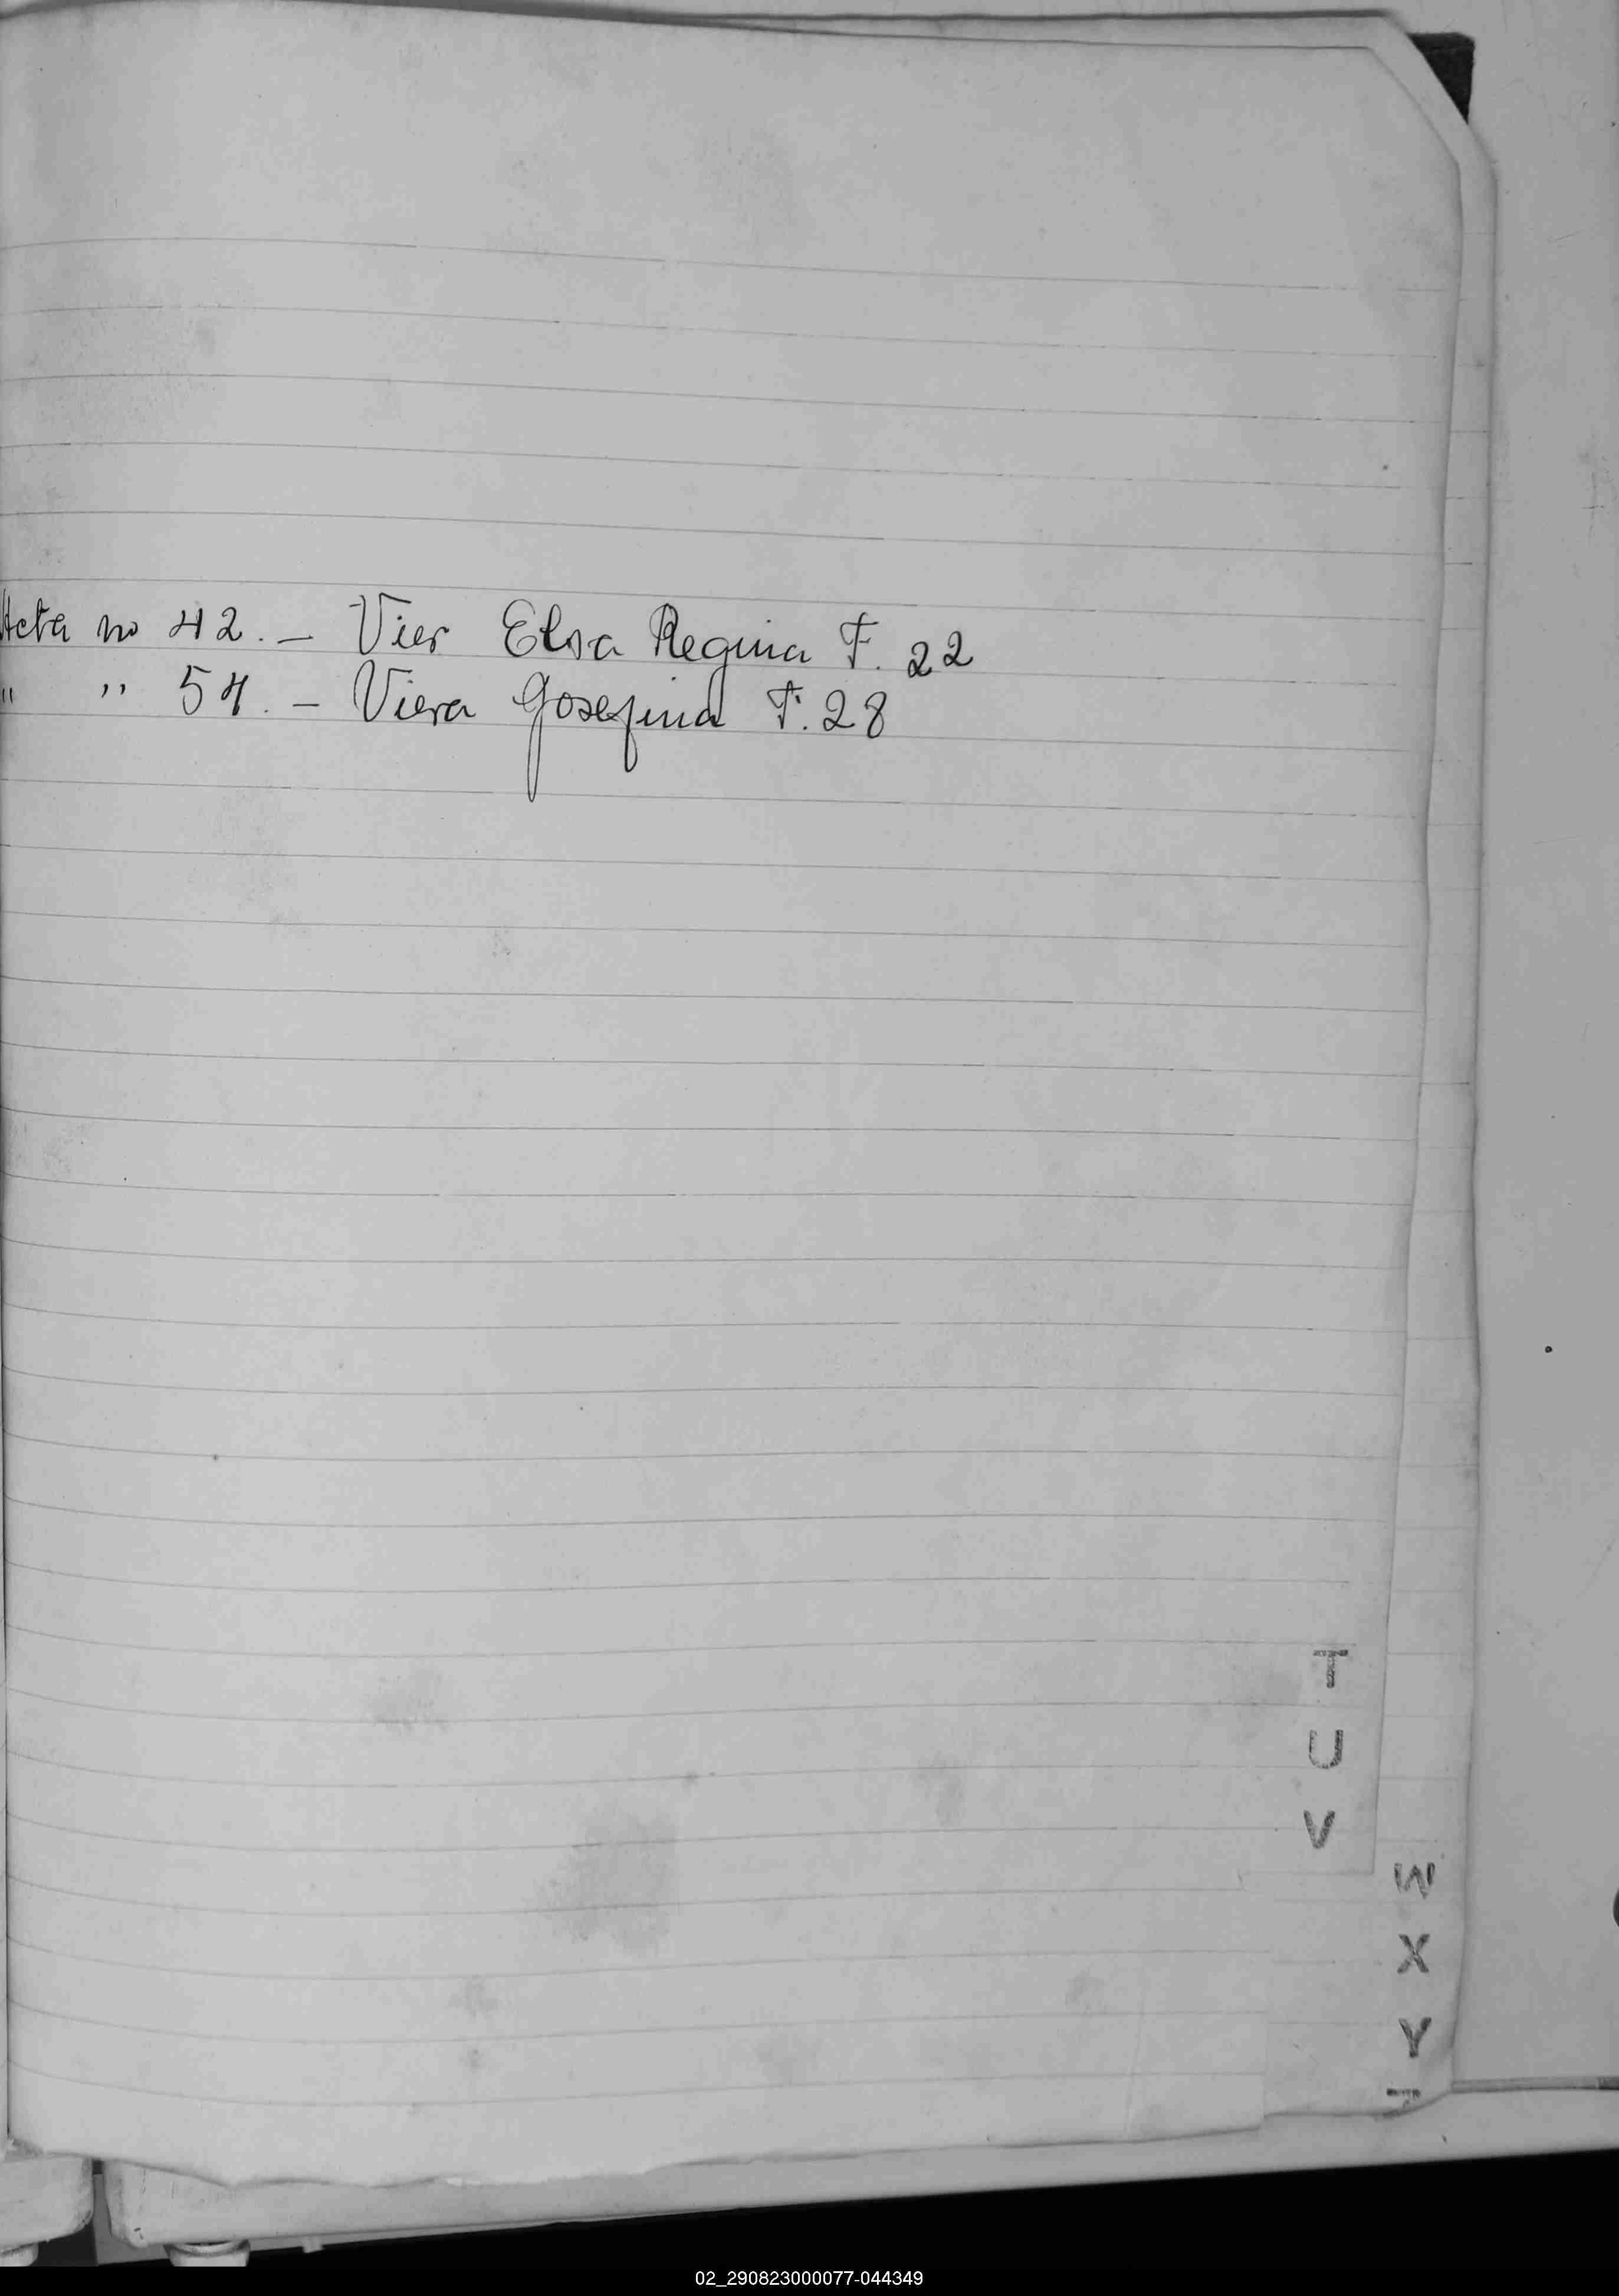 Acta no 42. - Vier Elsa Regina F. 22
" " 54. - Viera Josefina F. 28
T
U
V
W
X
Y
02_290823000077-044349